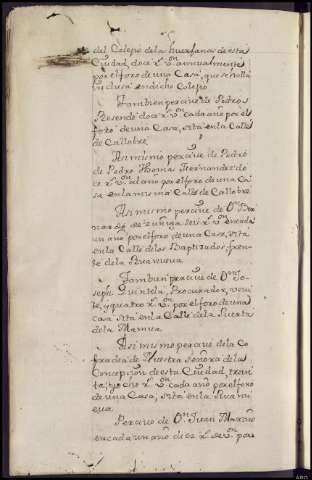 del Colegio de la huerfanas de esta
Ciudad, doce rs. vn. annualmente
por el foro de una Casa, que se halla
inclusa en dicho Colegio
Tambien percive de Pedro
Resende doce rs. vn. cada año por el
foro de una Casa, sita en la Calle
de Callobre
Asimismo percive de Pedro
de Pedro Thomas Fernandez do
ce rs. vn. al año por el foro de una Ca
sa en la misma Calle de Callobre
Asimismo percive de Dn.
de Zuñiga seis rs. vn. en cada
un año por el foro de una Casa, sita
en la Calle de los Baptizados, fren
te de la Rua nueva
Tambien percive de Dn. Jo
seph Quintela, Procurador, vein
te, y quatro rs. vn. por el foro de una
casa sita en la Calle de la Puerta
de la Mamua
Asimismo percive de la Co
fradia de Nuestra Señora de la
Concepcion de esta Ciudad, trein
ta, y ocho rs. vn. cada año por el foro
de una Casa, sita en la Rua nu
eva
Percive de Dn. Juan
en cada un año diez rs. de vn. por